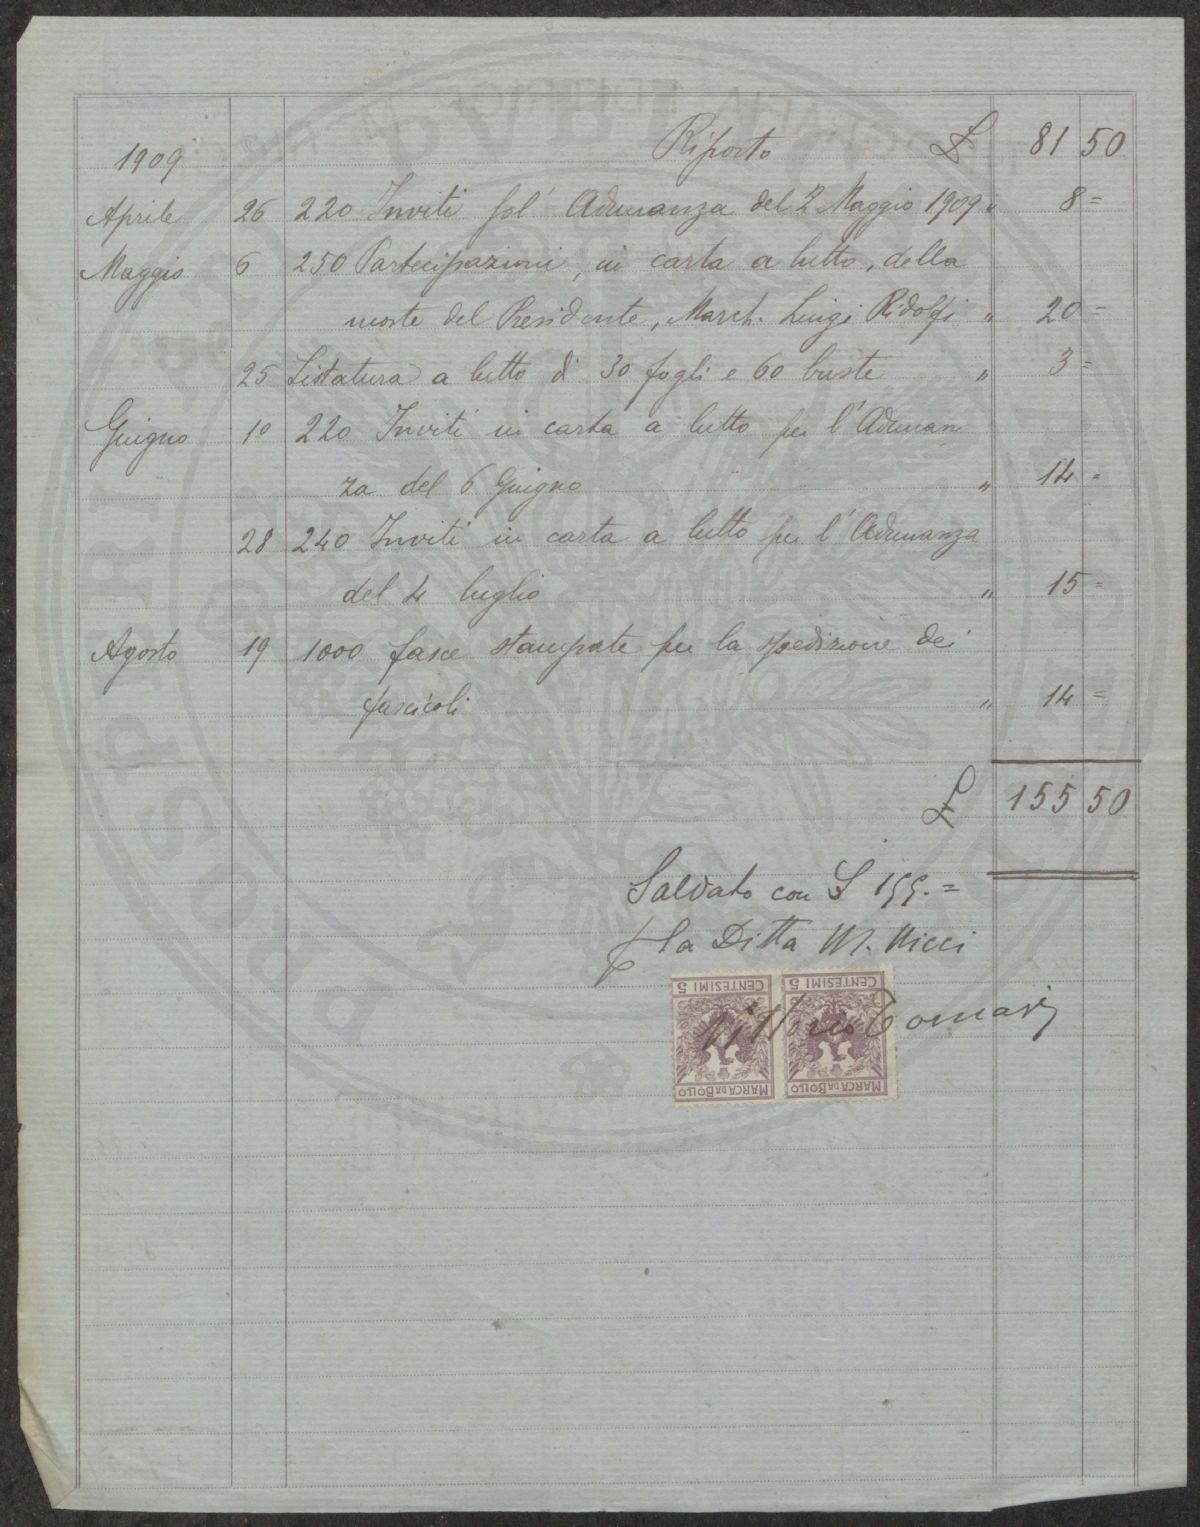 Riporto £ 81 50
1909
Aprile 26 220 Inviti pel' Adunanza del 2 Maggio 1909 " 8 =
Maggio 6 250 Partecipazioni, in carta a lutto, della
morte del Presidente, March. Luigi Ridolfi " 20 =
25 Listatura a lutto di 30 fogli e 60 buste " 3 =
Giugno 10 220 Inviti in carta a lutto per l'Adunan
za del 6 Giugno " 14 =
28 240 Inviti in carta a lutto per l'Adunanza
del 4 luglio " 15 =
Agosto 19 1000 fasce stampate per la spedizione dei
fascicoli " 14 =
£ 155 50
Saldato con £ 155.=
p la Ditta M. Ricci
CENTESIMI 5 CENTESIMI 5
Tomasi
MARCA DA BOLLO MARCA DA BOLLO